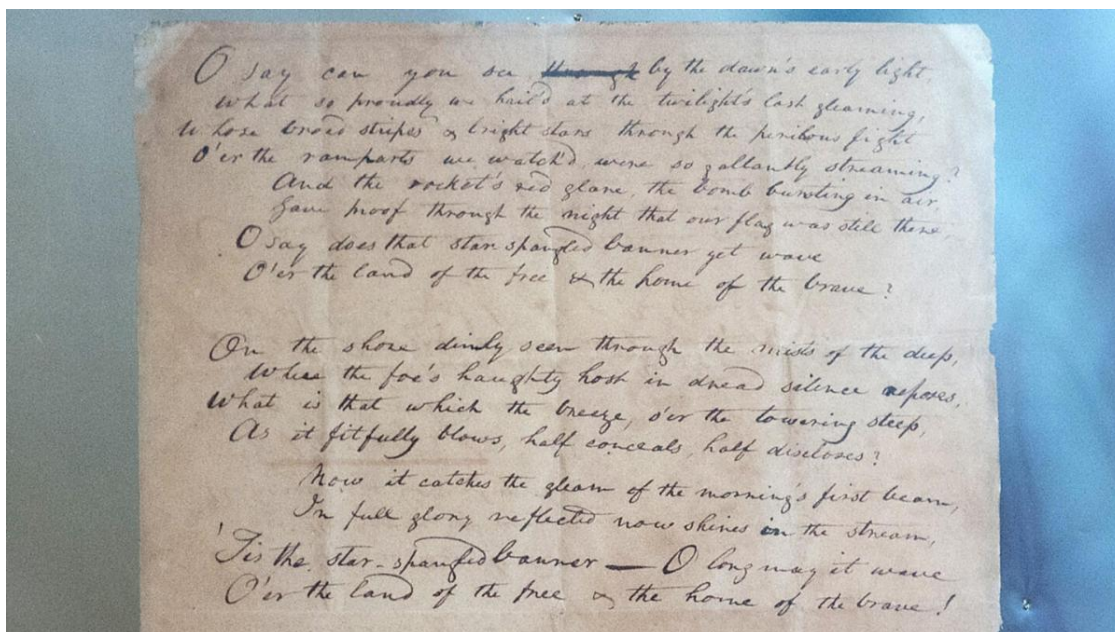 O say can you see ~~through~~ by the dawn's early light,
What so proudly we hail'd at the twilight's last gleaming,
Whose broad stripes & bright stars through the perilous fight
O'er the ramparts we watch'd, were so gallantly streaming?
And the rocket's red glare, the bomb bursting in air,
Gave proof through the night that our flag was still there,
O say does that star spangled banner yet wave
O'er the land of the free & the home of the brave?
On the shore dimly seen through the mists of the deep,
Where the foe's haughty host in dread silence reposes,
What is that which the breeze, o'er the towering steep,
As it fitfully blows, half conceals, half discloses?
Now it catches the gleam of the morning's first beam,
In full glory reflected now shines in the stream,
'Tis the star-spangled banner — O long may it wave
O'er the land of the free & the home of the brave!